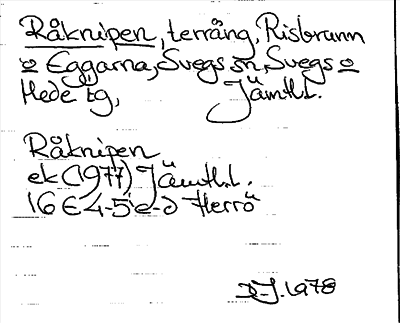 Råknipen, terräng, Risbrunn
o Eggarna, Svegs sn, Svegs o
Hede tg, Jämtl.
Råknipen
ek (1977) Jämtl.l.
16 E 4-5 c-d Herrö
1978